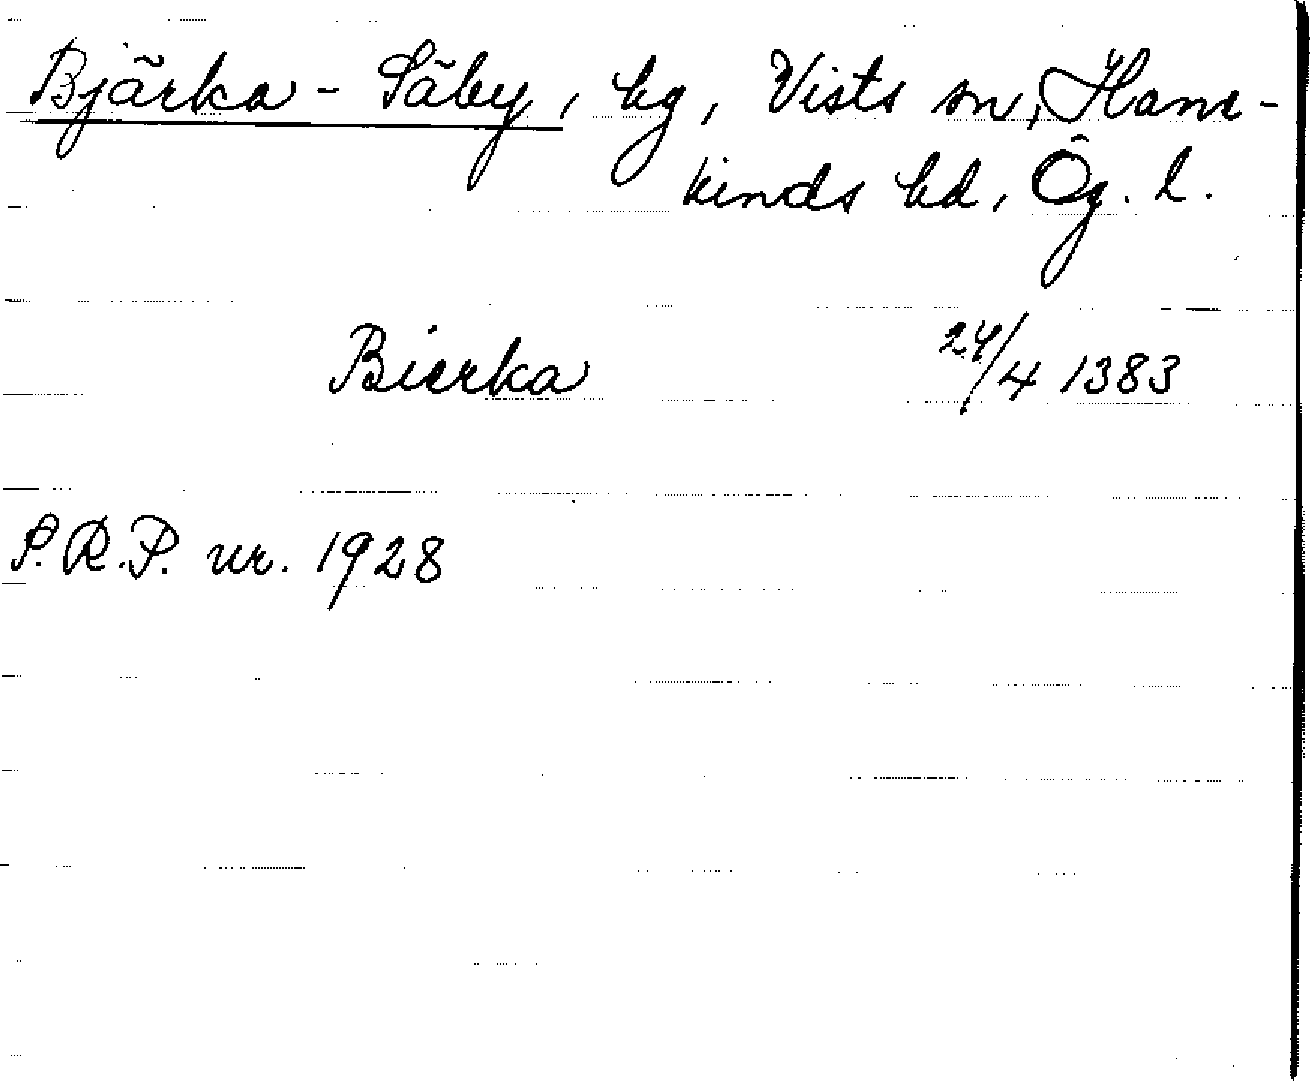 Bjärka-Säby, hg, Vists sn, Hane-
kinds hd, Ög. l.
Bierka 24/4 1383
S.R.P. nr. 1928